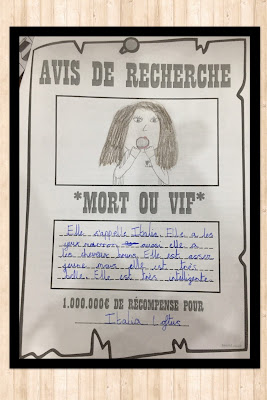 AVIS DE RECHERCHE
*MORT OU VIF*
Elle s'appelle Italia. Elle a les
yeux marron aussi elle a
les cheveux bruns. Elle est assez
jeune mais elle est très
jolie. Elle est très intelligente.
1.000.000€ DE RÉCOMPENSE POUR
Italia Loftus